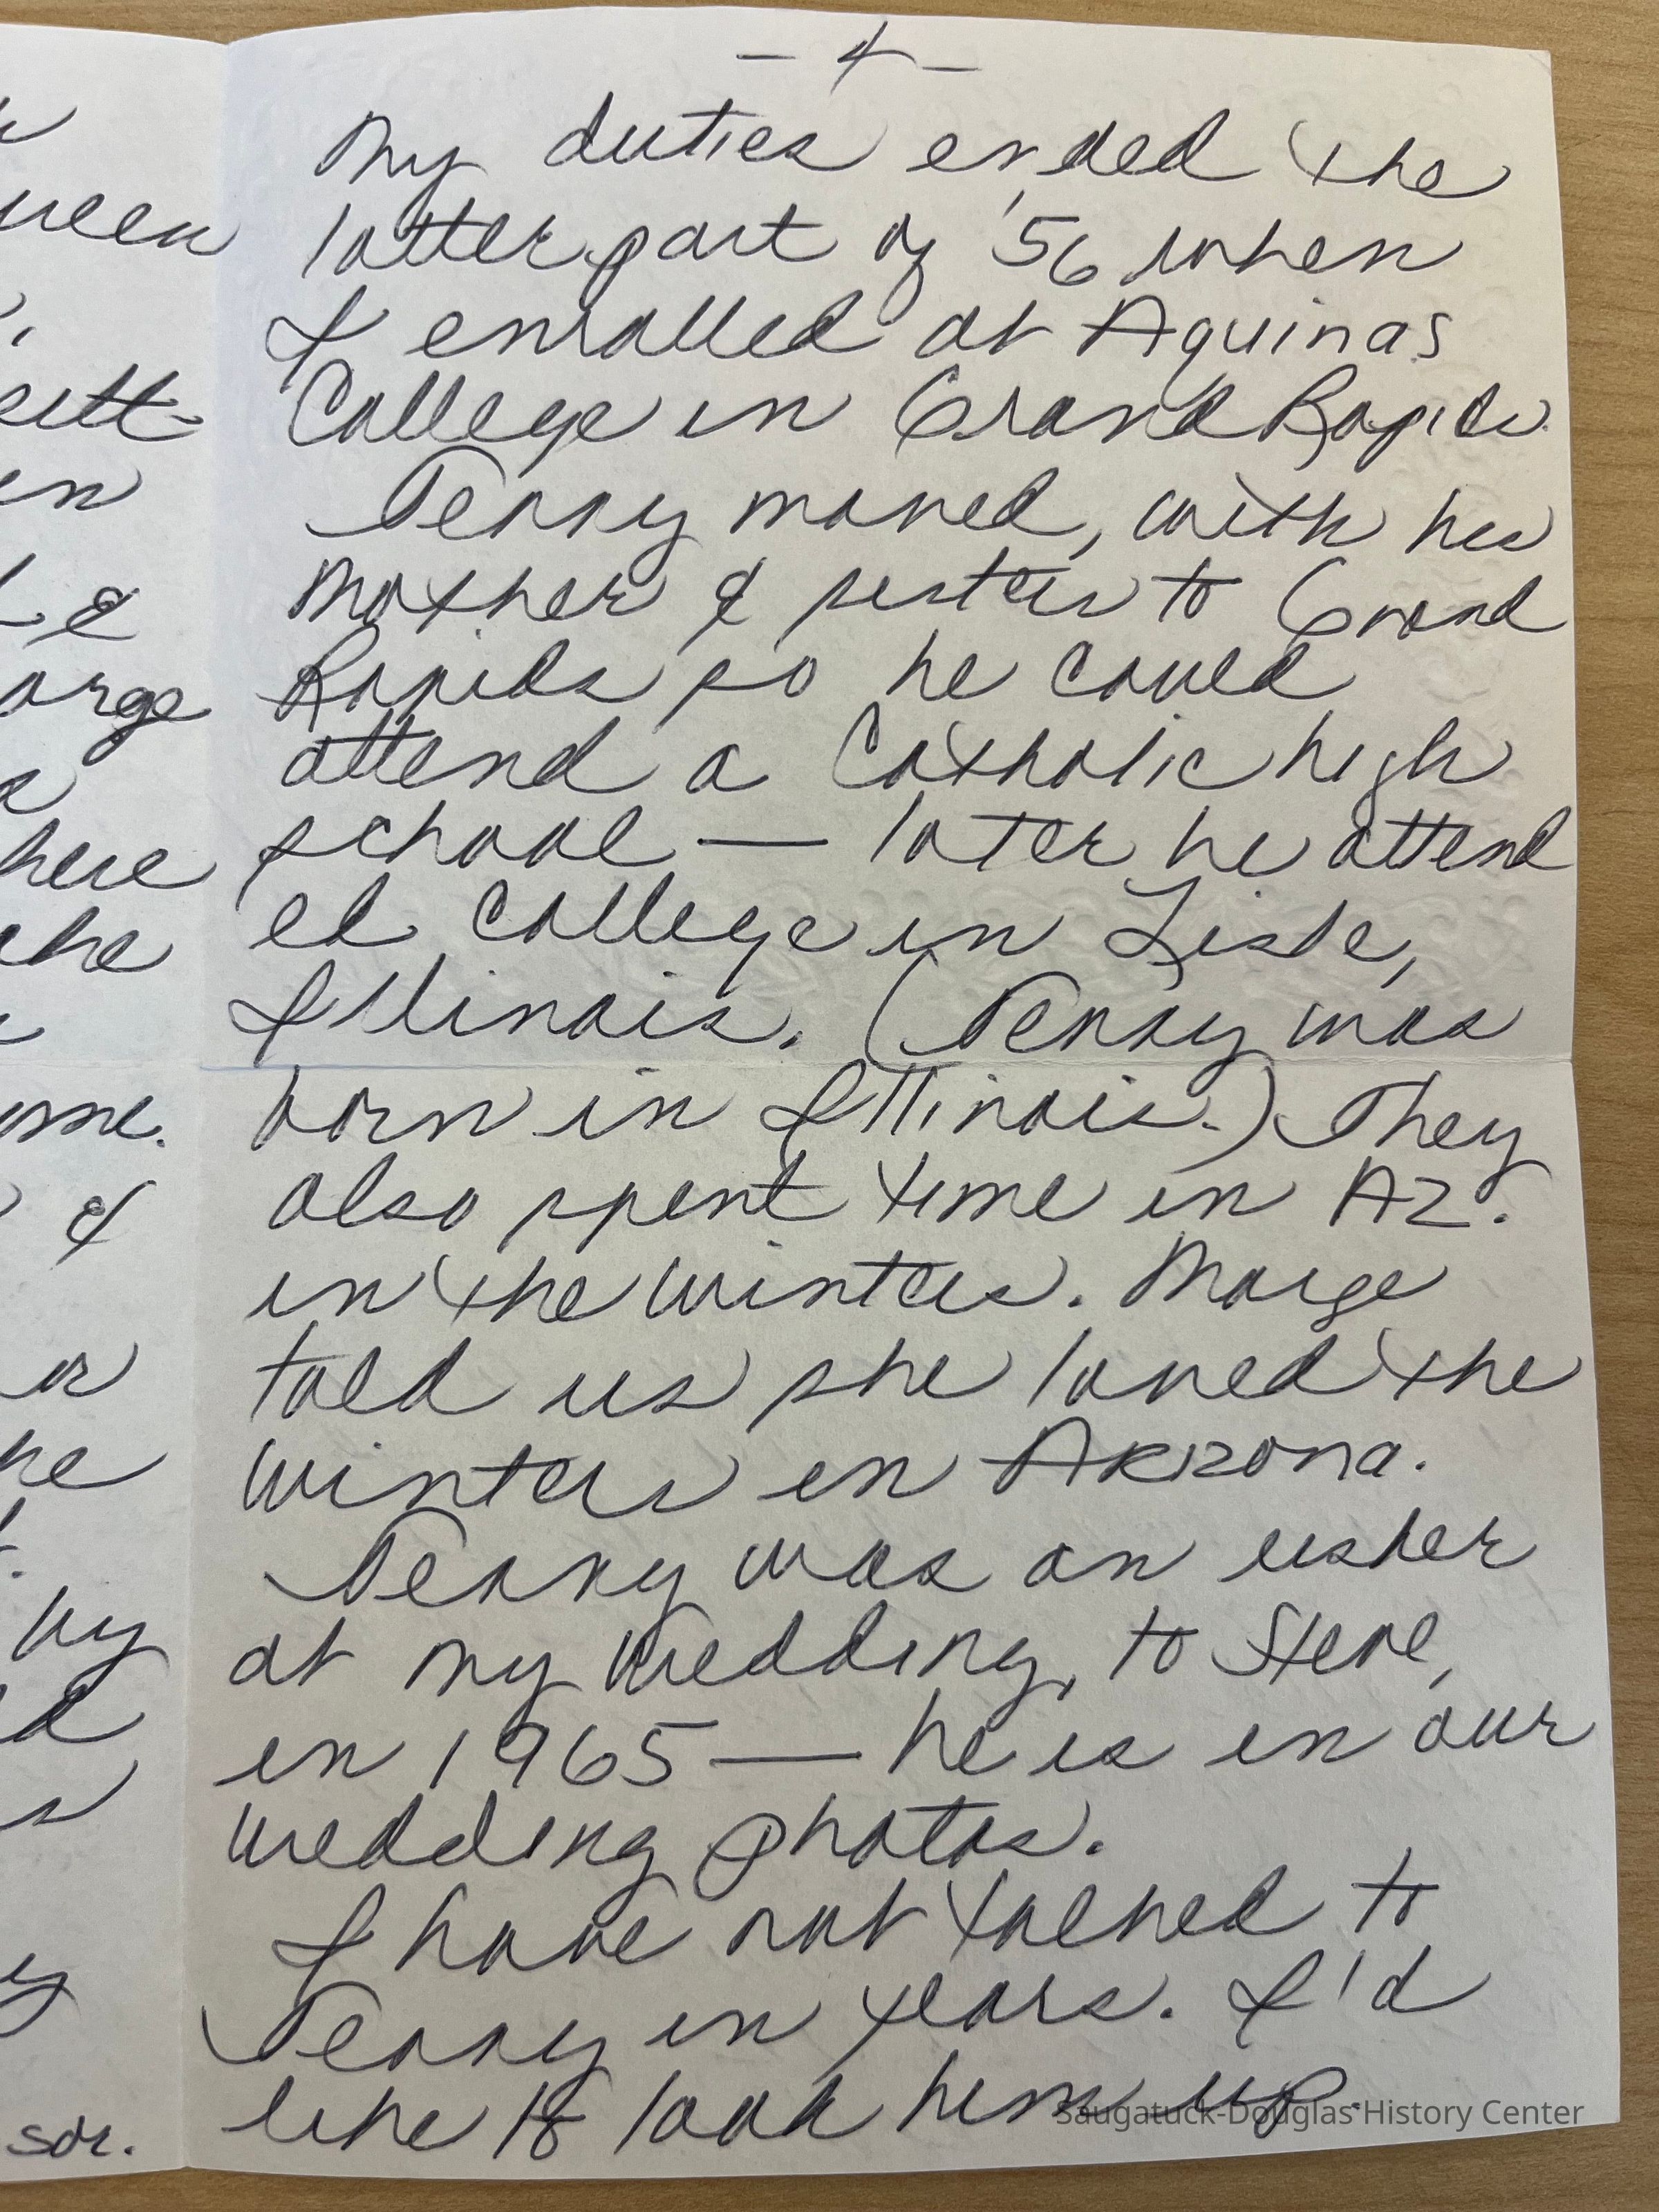 ween
sitt-
en
&
arge
here
she
&
or
he
by
- 4 -
My duties ended the
latter part of '56 when
I enrolled at Aquinas
College in Grand Rapids.
moved, with his
mother & sister to Grand
Rapids so he could
attend a Catholic high
school — later he attend
ed college in Lisle,
Illinois. ( was
born in Illinois.) They
also spent time in AZ.
in the winters. Marge
told us she loved the
winters in Arizona.
was an usher
at my wedding, to Steve,
in 1965 — he is in our
wedding photos.
I have not talked to
in years. I'd
like to look him up.
Saugatuck-Douglas History Center